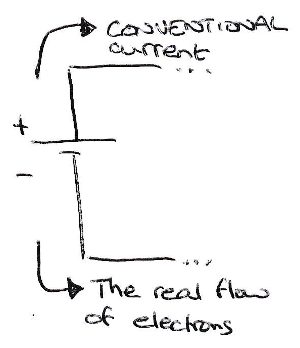 CONVENTIONAL
current
...
+
-
...
The real flow
of electrons